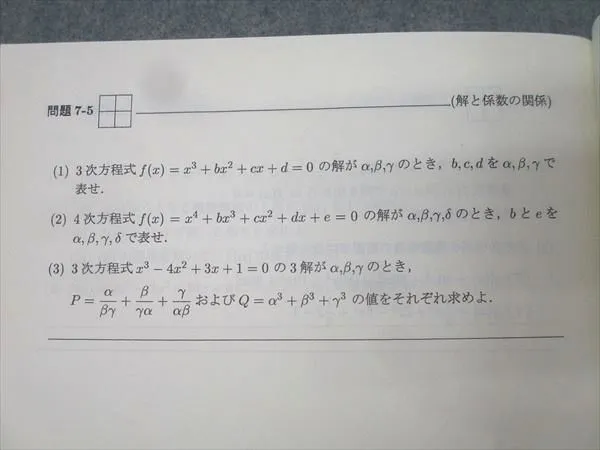 問題 7-5 (解と係数の関係)
(1) 3次方程式 f(x) = x³ + bx² + cx + d = 0 の解が α,β,γ のとき, b, c, d を α, β, γ で
表せ.
(2) 4次方程式 f(x) = x⁴ + bx³ + cx² + dx + e = 0 の解が α,β,γ,δ のとき, b と e を
α, β, γ, δ で表せ.
(3) 3次方程式 x³ − 4x² + 3x + 1 = 0 の 3 解が α,β,γ のとき,
P = α/βγ + β/γα + γ/αβ および Q = α³ + β³ + γ³ の値をそれぞれ求めよ.